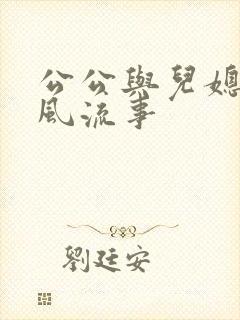 公公與兒媳
風流事
劉廷安